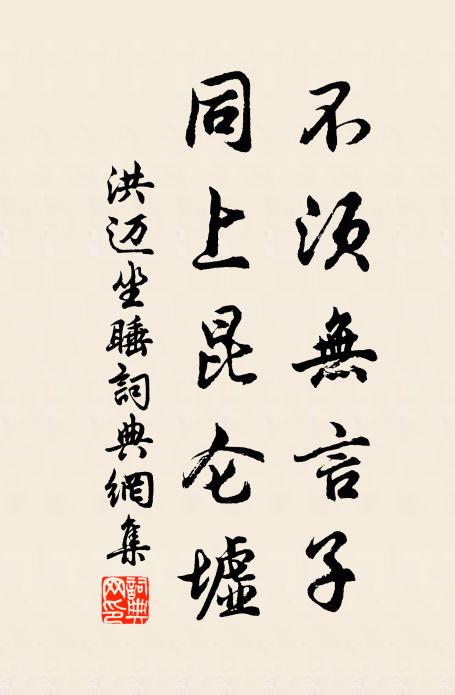 不須無言子
同上昆仑墟
洪迈坐睡詞典網集
詞典网印